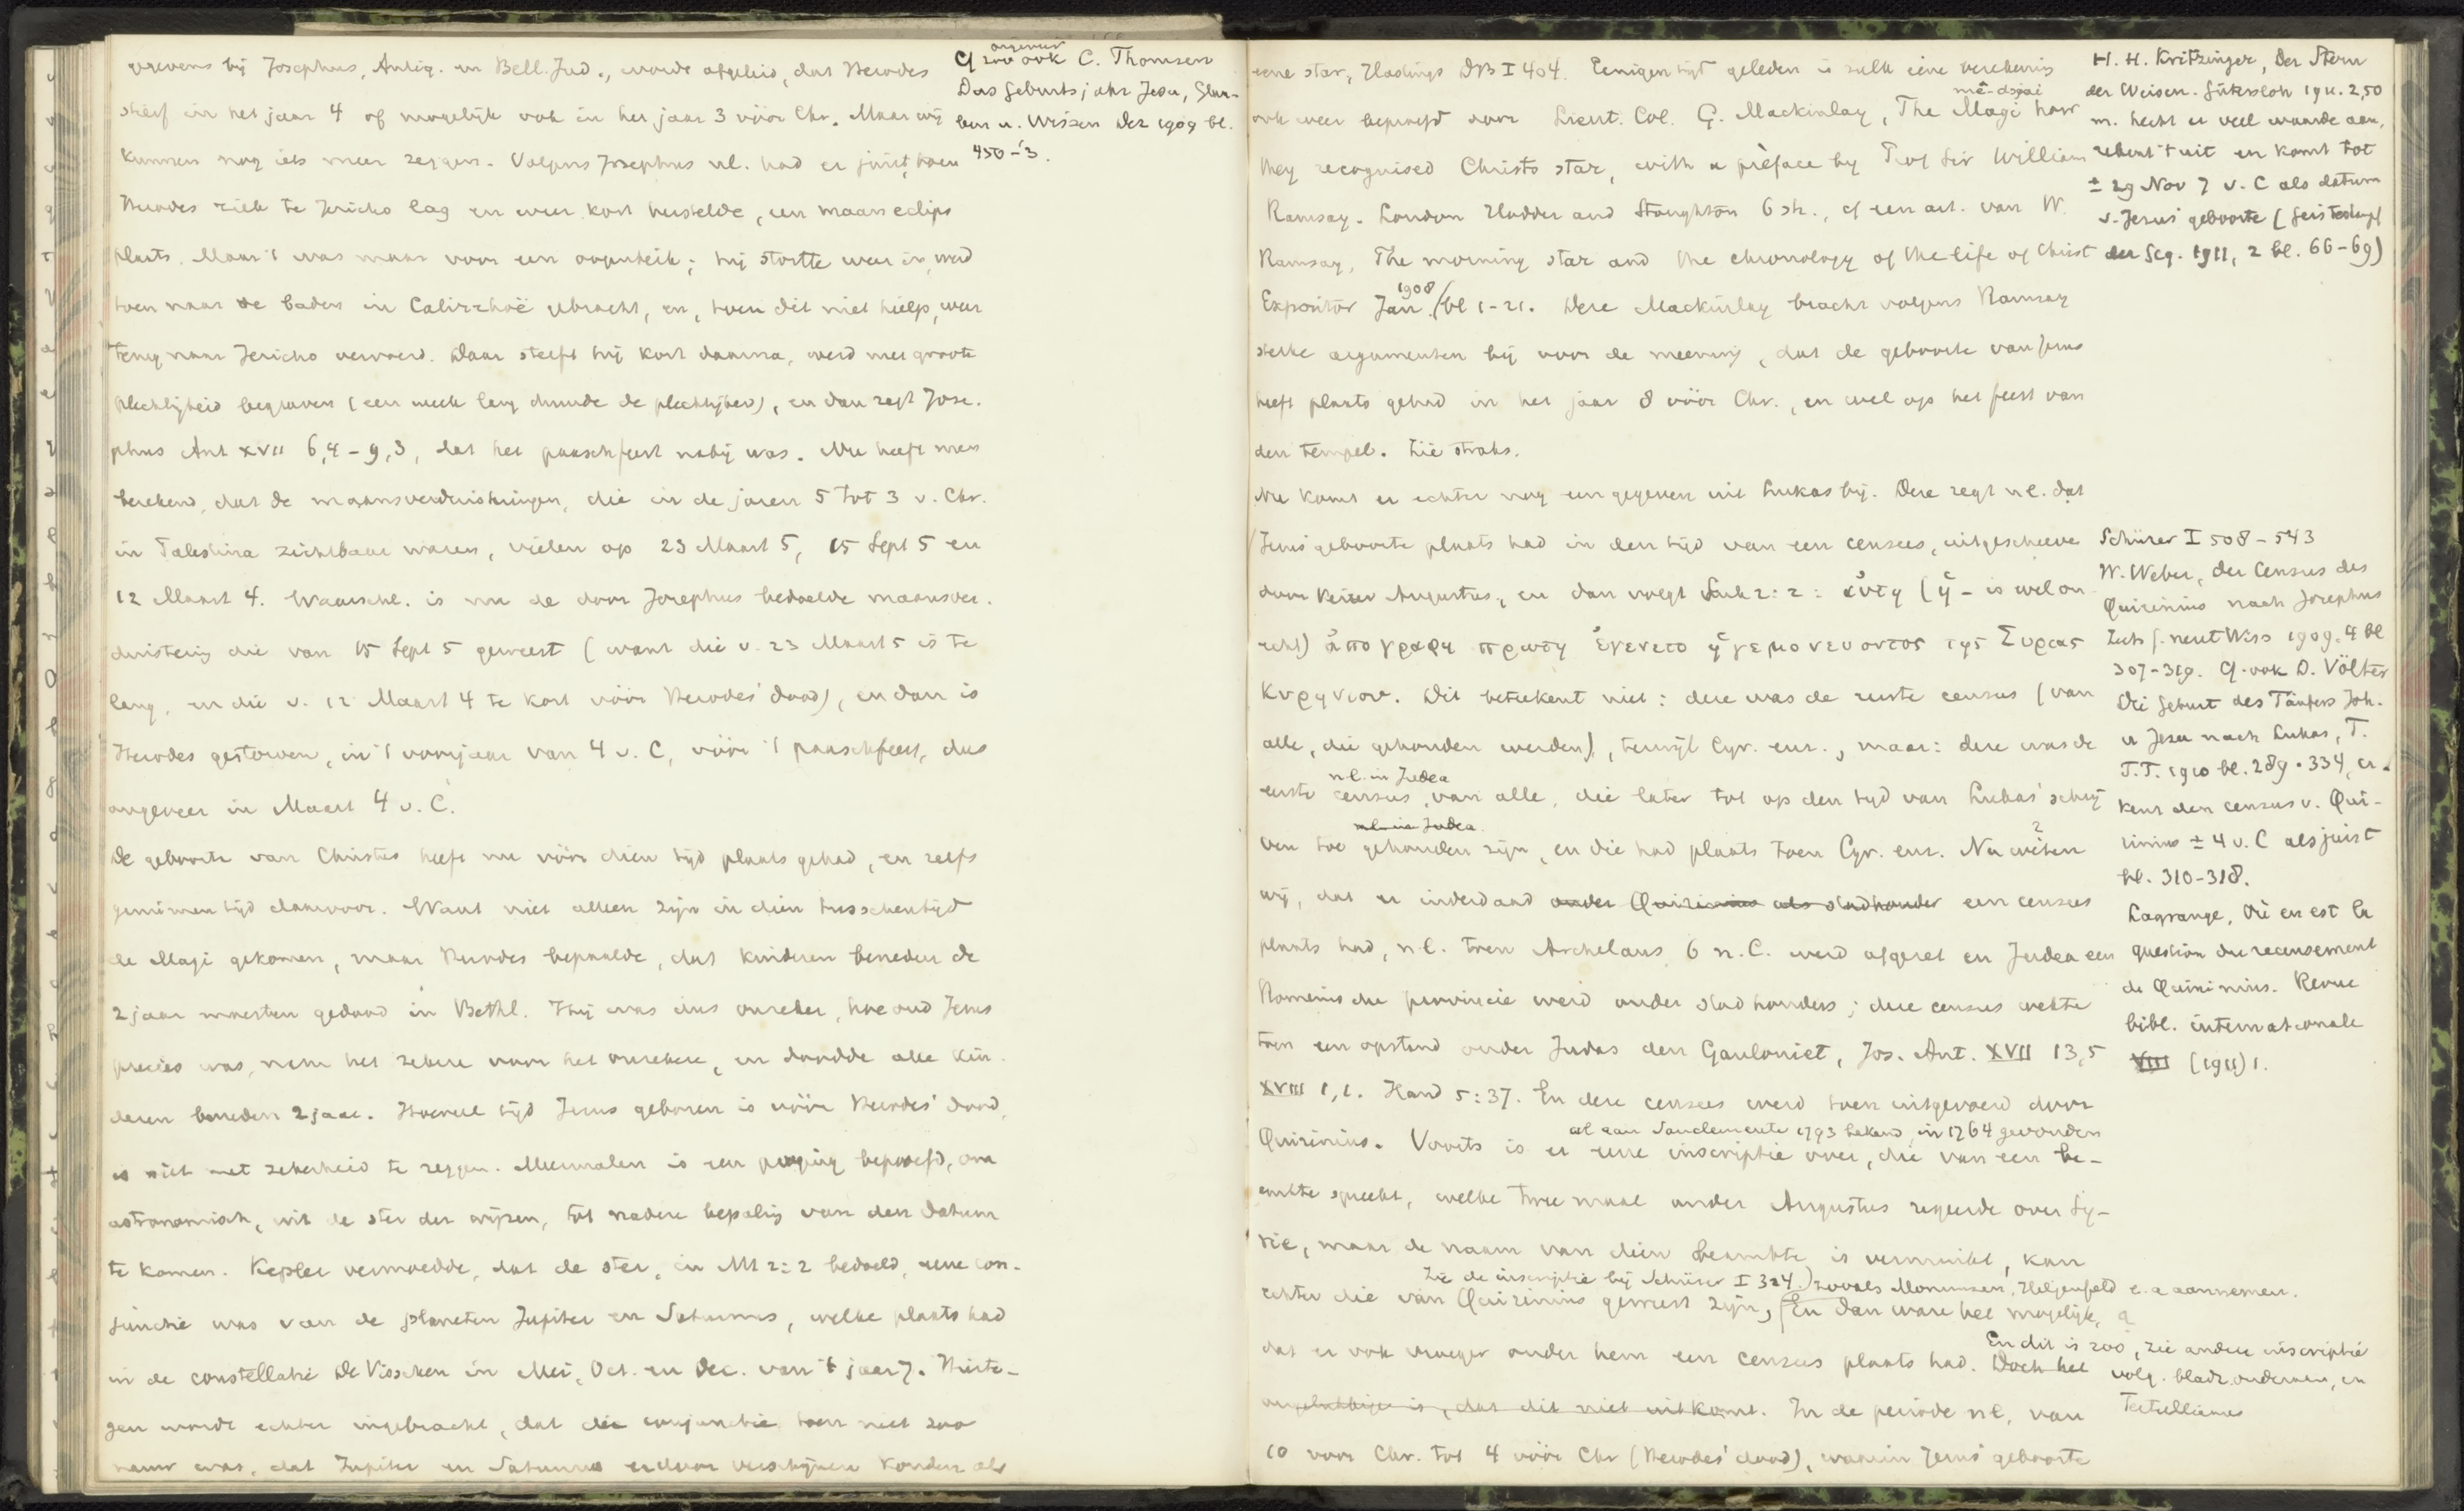 gevens bij Josephus, Antiq. en Bell. Jud., worde afgeleid, dat Herodes
stierf in het jaar 4 of mogelijk ook in het jaar 3 vóór Chr. Maar wij
kunnen nog iets meer zeggen. Volgens Josephus nl. had er juist, toen
Herodes ziek te Jericho lag en weer kort herstelde, een maaneclips
plaats. Maar 't was maar voor een oogenblik; hij stortte weer in, werd
toen naar de baden in Calirrhoë gebracht, en, toen dit niet hielp, weer
terug naar Jericho vervoerd. Daar stierf hij kort daarna, werd met groote
plechtigheid begraven (een week lang duurde de plechtigheid), en dan zegt Jose-
phus Ant XVII 6,4-9,3, dat het paaschfeest nabij was. Nu heeft men
berekend, dat de maansverduisteringen, die in de jaren 5 tot 3 v. Chr.
in Palestina zichtbaar waren, vielen op 23 Maart 5, 15 Sept 5 en
12 Maart 4. Waarschl. is nu de door Josephus bedoelde maansver-
duistering die van 15 Sept 5 geweest (want die v. 23 Maart 5 is te
lang, en die v. 12 Maart 4 te kort vóór Herodes' dood), en dan is
Herodes gestorven, in 't voorjaar van 4 v. C, vóór 't paaschfeest, dus
ongeveer in Maart 4 v. C.
De geboorte van Christus heeft nu vóór dien tijd plaats gehad, en zelfs
geruimen tijd daarvoor. Want niet alleen zijn in dien tusschentijd
de Magi gekomen, maar Herodes bepaalde, dat kinderen beneden de
2 jaar moesten gedood in Bethl. Hij was dus onzeker, hoe oud Jezus
precies was, nam het zekere voor het onzekere, en doodde alle kin-
deren beneden 2 jaar. Hoeveel tijd Jezus geboren is vóór Herodes' dood,
is niet met zekerheid te zeggen. Meermalen is een poging beproefd, om
astronomisch, uit de ster der wijzen, tot nadere bepaling van den datum
te komen. Kepler vermoedde, dat de ster, in Mt 2:2 bedoeld, eene con-
junctie was van de planeten Jupiter en Saturnus, welke plaats had
in de constellatie De Visschen in Mei, Oct. en Dec. van 't jaar 7. Hierte-
gen wordt echter ingebracht, dat die conjunctie toen niet zoo
nauw was, dat Jupiter en Saturnus erdoor verschijnen konden als
ongeveer
Cf zoo ook C. Thomsen
Das Geburtsjahr Jesu, Glau-
ben u. Wissen Dez 1909 bl.
450-'3.
eene star, Hastings DB I 404. Eenigen tijd geleden is zulk eene berekenis
mē-dsjai
ook weer beproefd door Lieut. Col. G. Mackinlay, The Magi how
they recognised Christs star, with a preface by Prof Sir William
Ramsay. London Hodder and Stoughton 6 sh., cf een art. van W.
Ramsay, The morning star and the chronology of the life of Christ
1908
Expositor Jan. / bl 1-21. Deze Mackinlay bracht volgens Ramsay
sterke argumenten bij voor de meening, dat de geboorte van Jezus
heeft plaats gehad in het jaar 8 vóór Chr., en wel op het feest van
den tempel. Zie straks.
Nu komt er echter nog een gegeven uit Lukas bij. Deze zegt nl. dat
Jezus' geboorte plaats had in den tijd van een census, uitgeschreven
door keizer Augustus, en dan volgt Luk 2:2: αὑτη (ἡ - is wel on-
echt) ἀπογραφη πρωτη ἐγενετο ἡγεμονευοντος της Συριας
Κυρηνιου. Dit beteekent niet: deze was de eerste census (van
alle, die gehouden werden), terwijl Cyr. enz., maar: deze was de
nl. in Judea
eerste census, van alle, die later tot op den tijd van Lukas' schrij
nl. in Judea
ven toe gehouden zijn, en die had plaats toen Cyr. enz. Nu weten
wij, dat er inderdaad onder Quirinius als stadhouder een census
plaats had, n.l. toen Archelaus 6 n. C. werd afgezet en Judea een
Romeinsche provincie werd onder stadhouders; deze census wekte
toen een opstand onder Judas den Gauloniet, Jos. Ant. XVII 13,5
XVIII 1,1. Hand 5:37. En deze census werd toen uitgevoerd door
al aan Sanclemente 1793 bekend, in 1764 gevonden
Quirinius. Voorts is er eene inscriptie over, die van een be-
ambte spreekt, welke twee maal onder Augustus regeerde over Sy-
rië, maar de naam van dien beambte is vermuikt, kan
Zie de inscriptie bij Schürer I 324.) zooals Mommsen, Hilgenfeld e.a. aannemen.
echter die van Quirinius geweest zijn, En dan ware het mogelijk,
dat er ook vroeger onder hem een census plaats had. Doch het
ongelukkige is, dat dit niet uitkomt. In de periode nl. van
10 voor Chr. tot 4 vóór Chr (Herodes' dood), waarin Jezus' geboorte
H. H. Kritzinger, Der Stern
der Weisen. Gütersloh 1911. 2,50
m. hecht er veel waarde aan,
rekent 't uit en komt tot
± 29 Nov 7 v. C als datum
v. Jezus' geboorte (Geisteskampf
der Geg. 1911, 2 bl. 66-69)
Schürer I 508-543
W. Weber, Der Census des
Quirinius nach Josephus
Zeits f. neut Wiss 1909. 4 bl
307-319. Cf. ook D. Völter
Die Geburt des Täufers Joh.
u Jesu nach Lukas, T.
T.T. 1910 bl. 289-334, er-
kent den census v. Qui-
rinius ± 4 v. C als juist
bl. 310-318.
Lagrange, Où en est la
question du recensement
de Quirinius. Revue
bibl. internationale
VIII (1911) 1.
En dit is zoo, zie andere inscriptie
volg. bladz. onderaan, en
Tertullianus